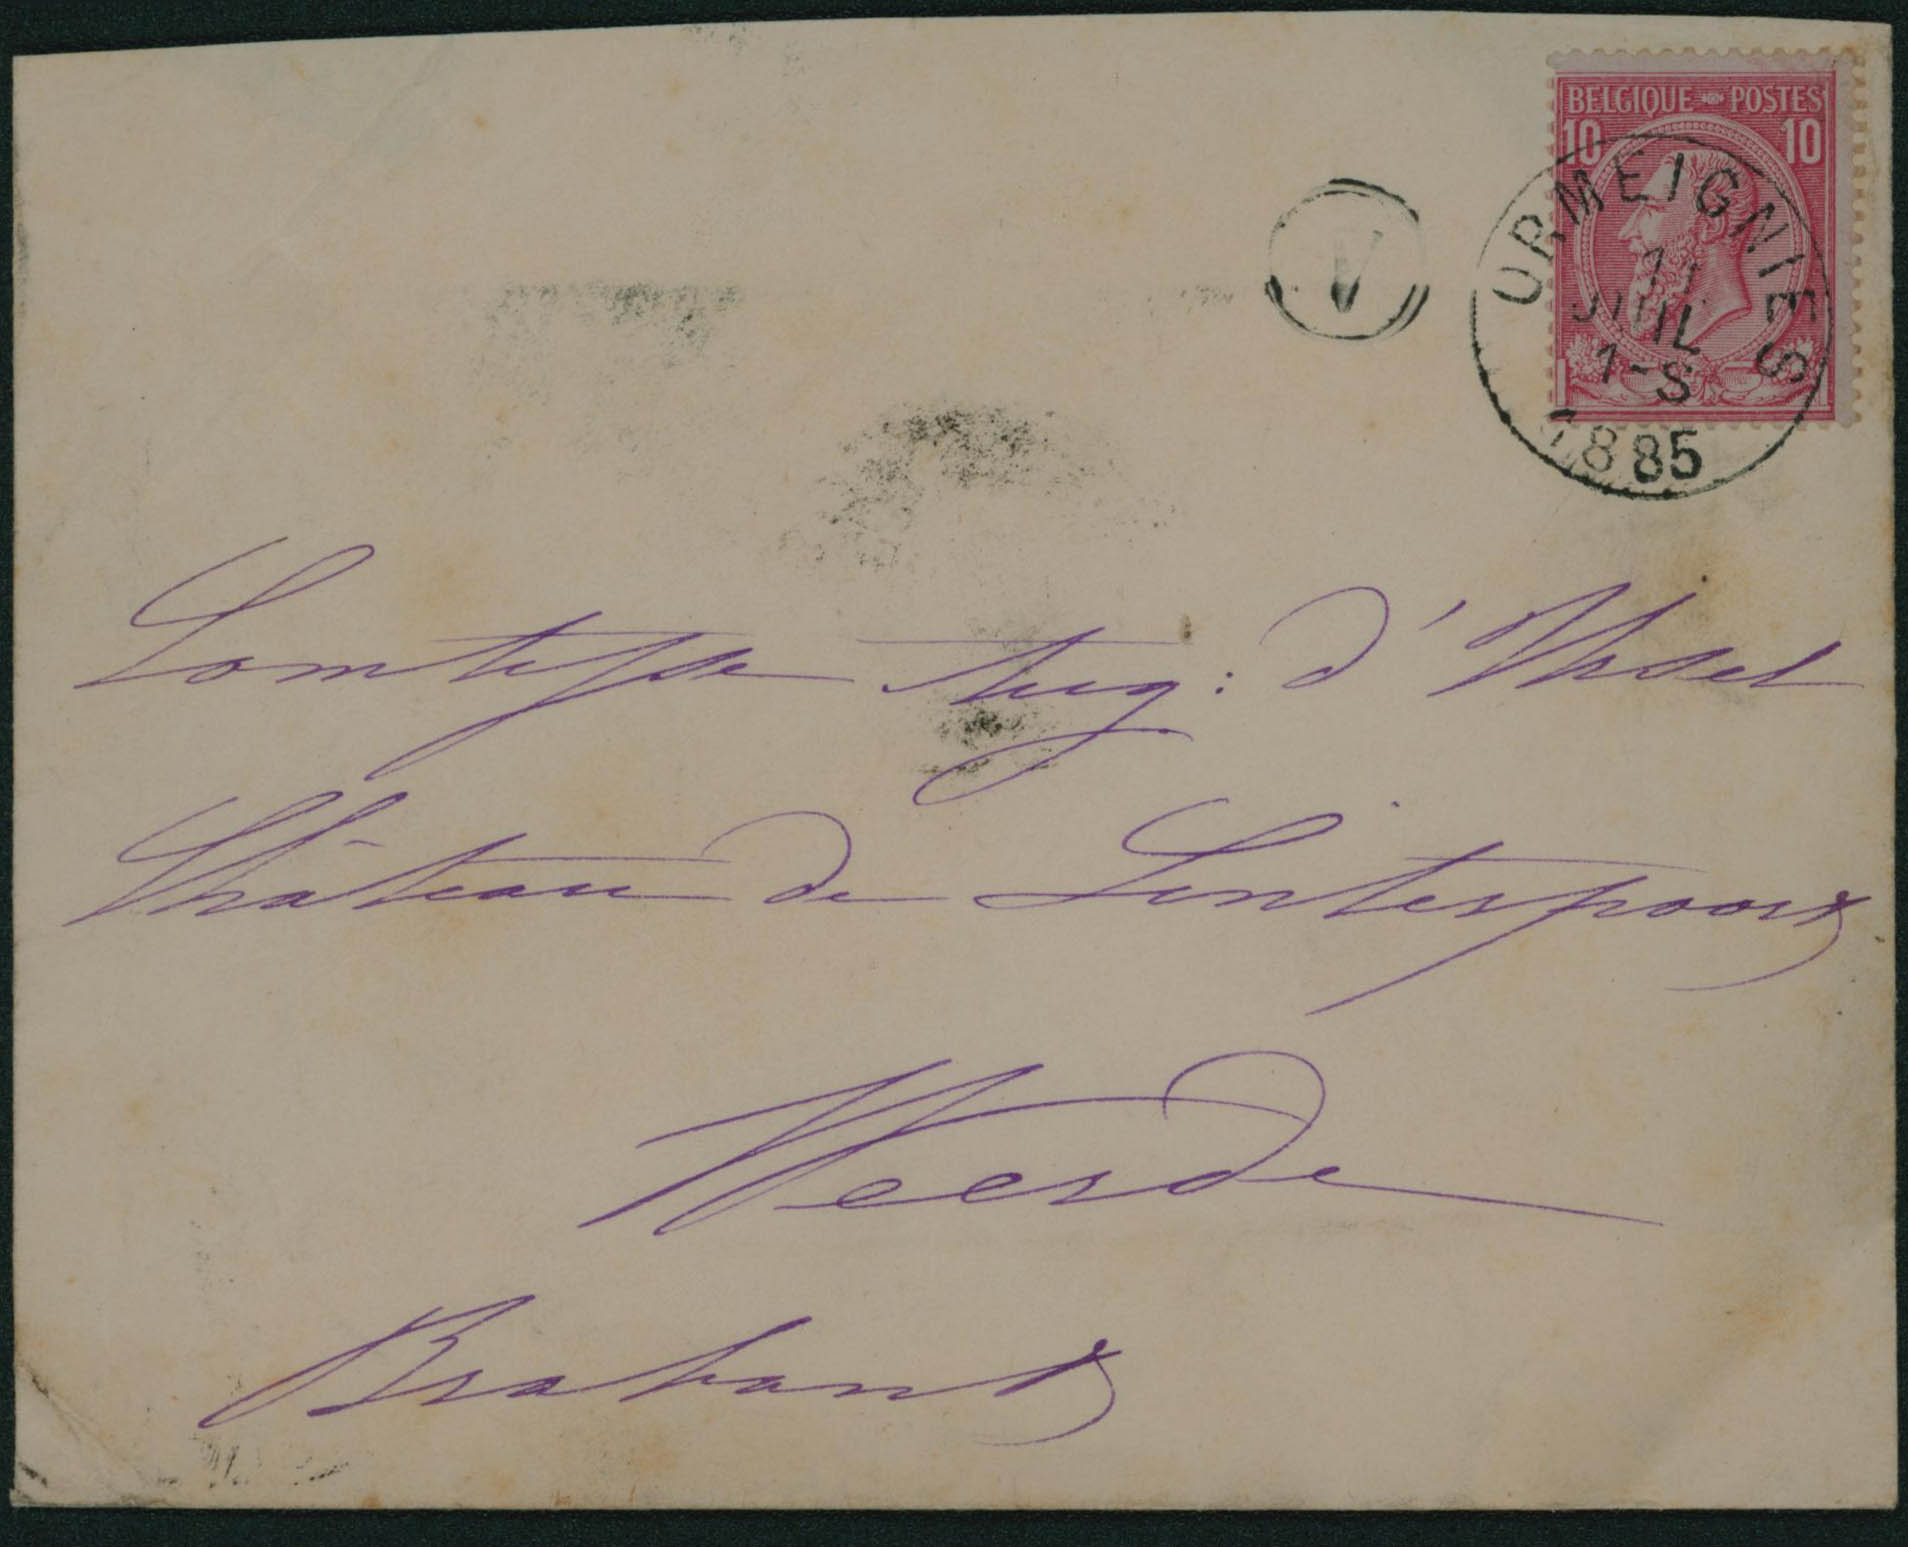 BELGIQUE POSTES
10 10
ORMEIGNIES
11
JUIL
1-S
1885
A
Comtesse Aug: d'Ursel
Château de Linterpoort
Weerde
Brabant